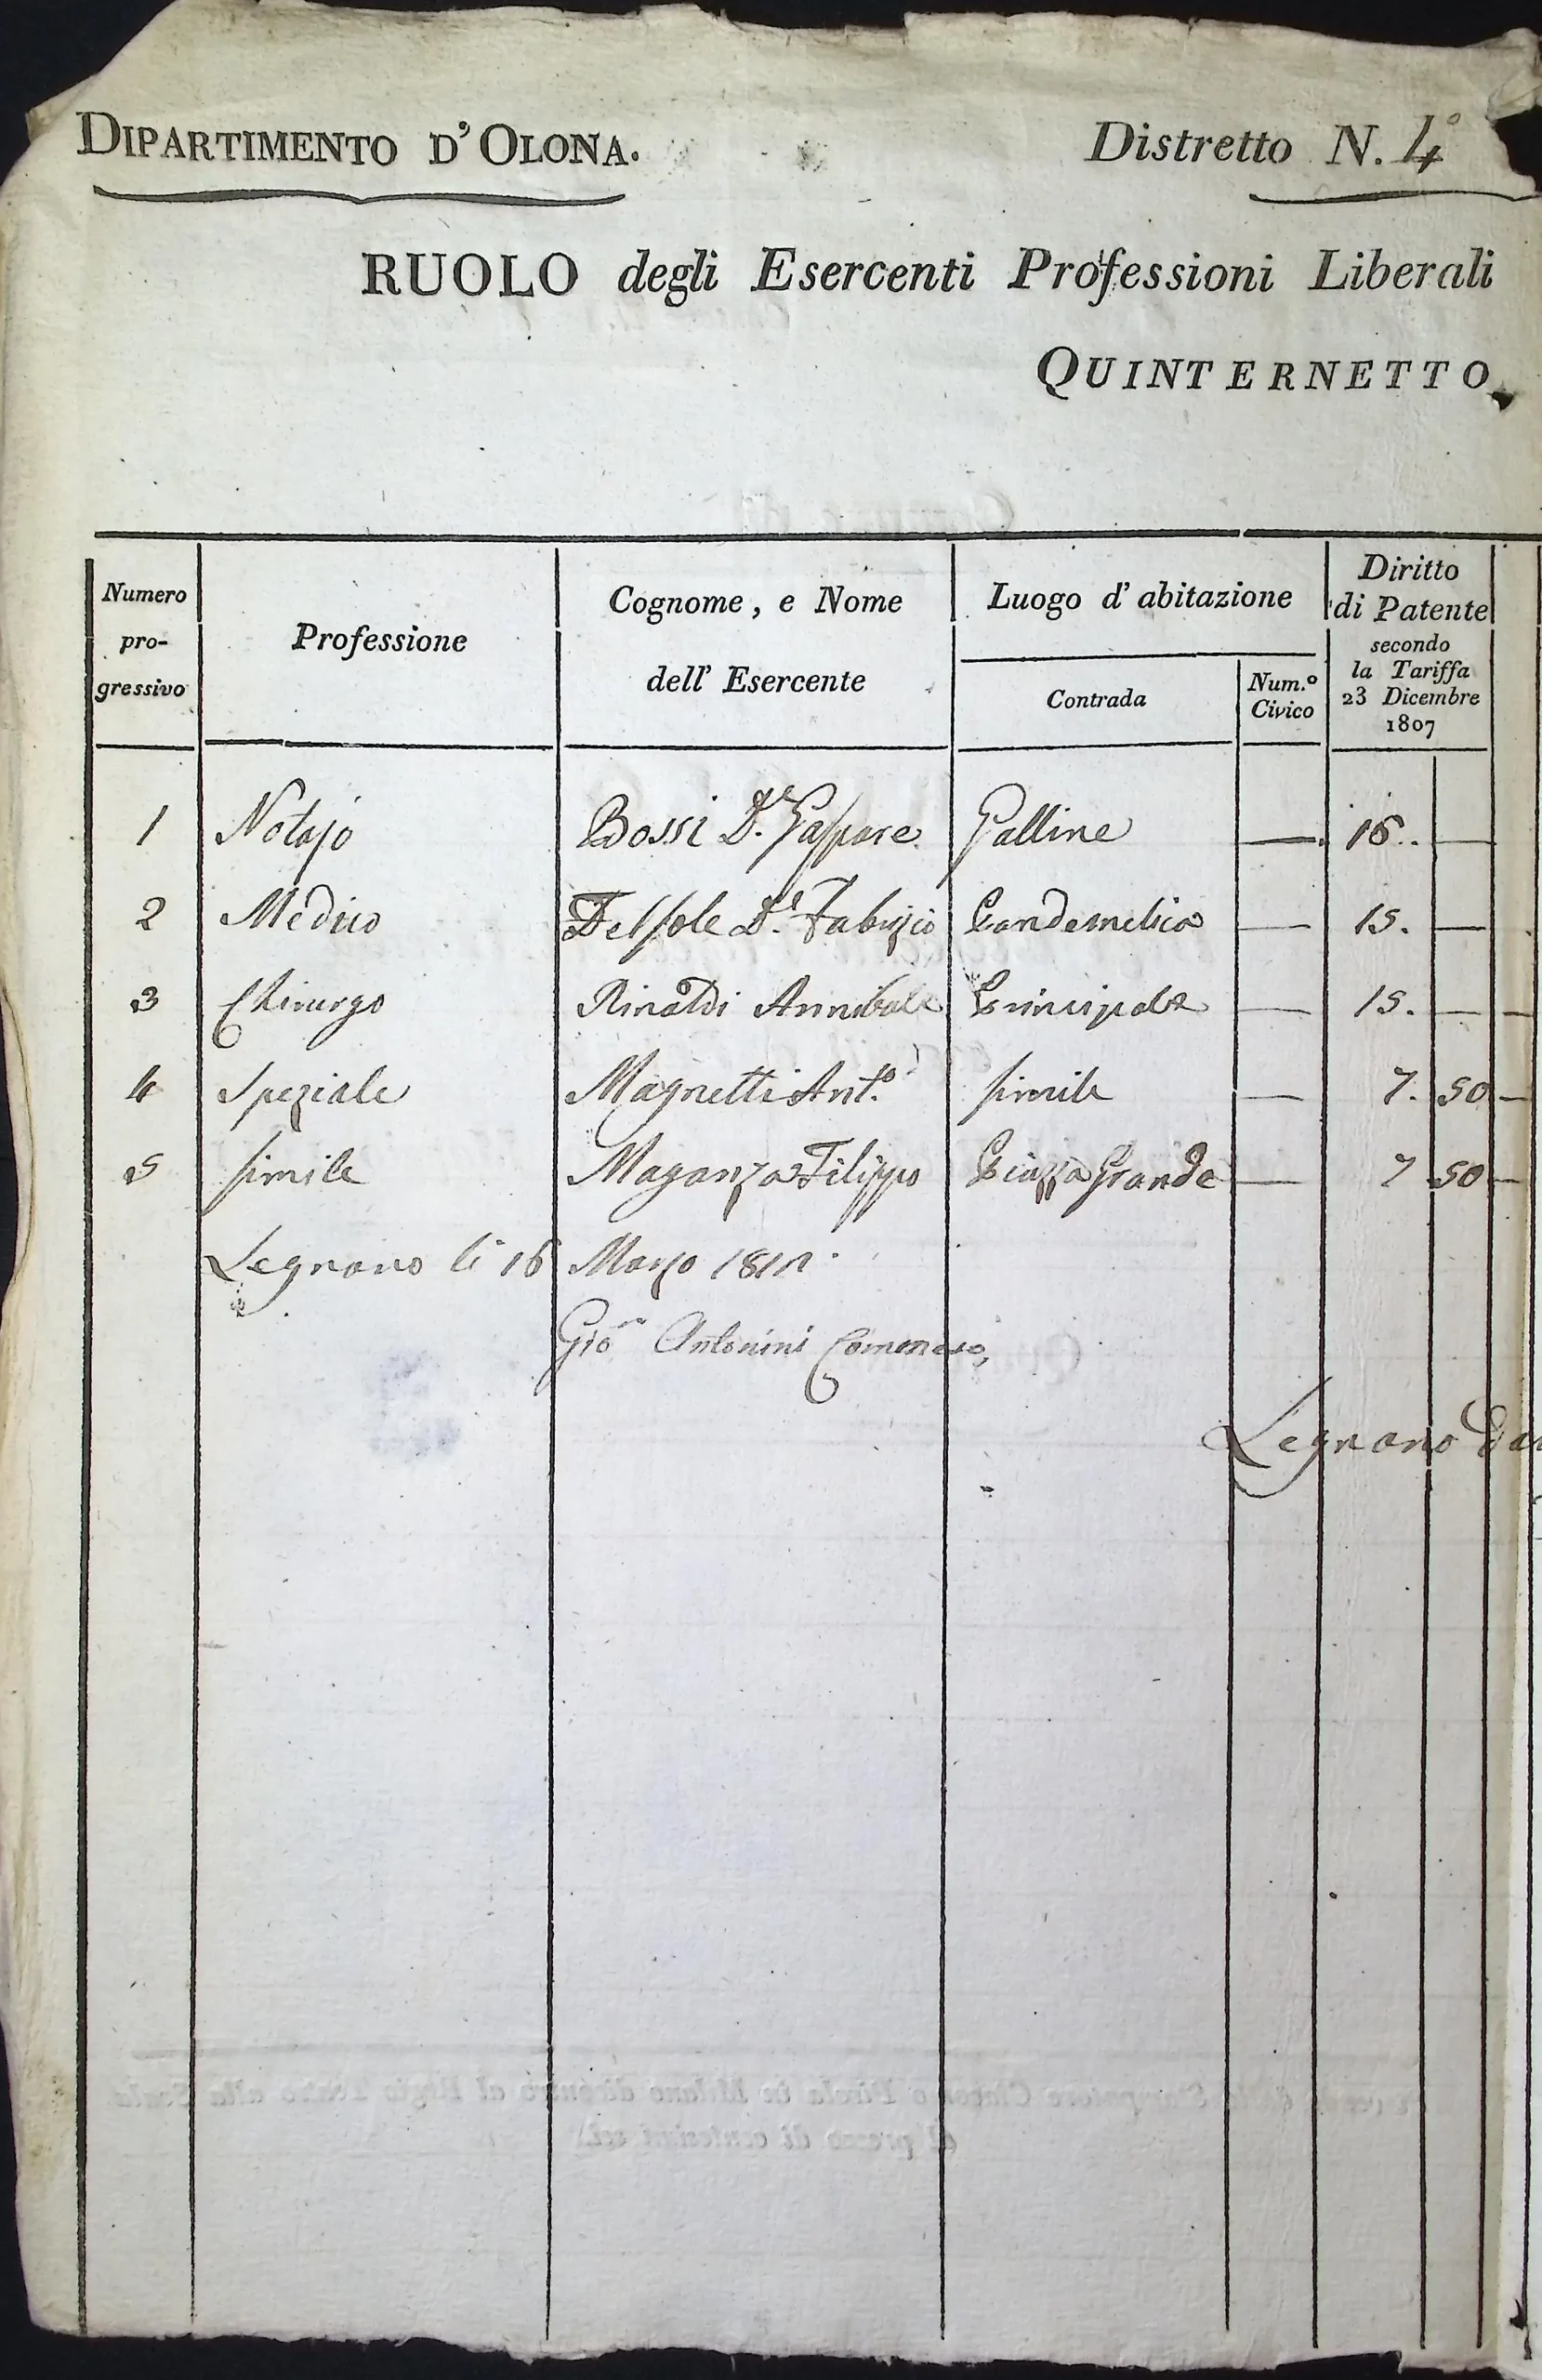 DIPARTIMENTO D'OLONA.
Distretto N. 4°
RUOLO degli Esercenti Professioni Liberali
QUINTERNETTO
Numero pro-gressivo
Professione
Cognome, e Nome dell' Esercente
Luogo d' abitazione
Contrada
Num.° Civico
Diritto di Patente secondo la Tariffa 23 Dicembre 1807
1 Notajo Bossi D.r Gaspare Galline — 15. —
2 Medico Delsole D.r Fabrizio — 15. —
3 Chirurgo Rinaldi Annibale Principale — 15. —
4 Speziale Magnetti Ant.o simile — 7. 50
5 simile Maganza Filippo Piazza Grande — 7 50
Legnano li 16 Marzo
Gio Antonini
Legnano